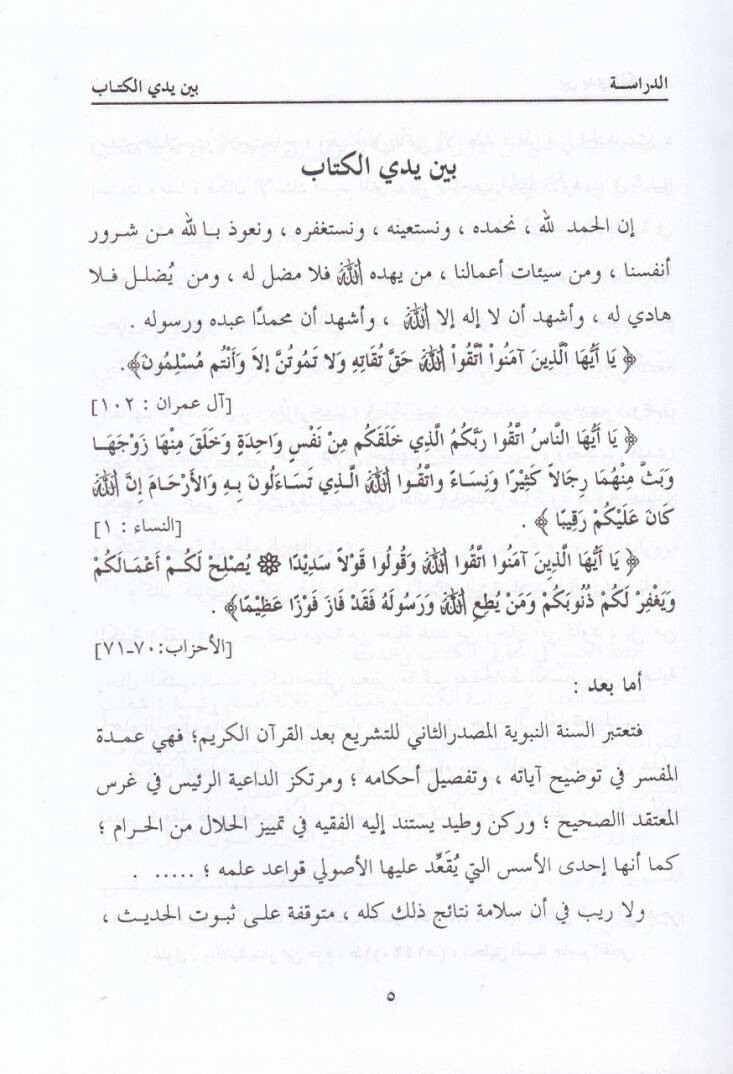 الدراسة
بين يدي الكتاب
بين يدي الكتاب
إن الحمد لله ، نحمده ، ونستعينه ، ونستغفره ، ونعوذ بالله من شرور
أنفسنا ، ومن سيئات أعمالنا ، من يهده الله فلا مضل له ، ومن يُضلل فلا
هادي له ، وأشهد أن لا إله إلا الله ، وأشهد أن محمدًا عبده ورسوله .
﴿ يَا أَيُّهَا الَّذِينَ آمَنُواْ اتَّقُواْ اللهَ حَقَّ تُقَاتِهِ وَلا تَمُوتُنَّ إِلاَ وَأَنْتُم مُسْلِمُونَ﴾.
[آل عمران : ١٠٢]
﴿ يَا أَيُّهَا النَّاسُ اتَّقُوا رَبَّكُمُ الَّذِي خَلَقَكُم مِنْ نَفْسٍ وَاحِدَةٍ وَخَلَقَ مِنْهَا زَوْجَهَا
وَبَثَّ مِنْهُمَا رِجَالاً كَثِيْرًا وَنِسَاءً واتَّقُوا اللهَ الَّذِي تَسَاءَلُونَ بِهِ وَالأَرْحَامَ إِنَّ اللهَ
كَانَ عَلَيْكُمْ رَقِيبًا ﴾ .
[النساء : ١]
﴿ يَا أَيُّهَا الَّذِينَ آمَنُوا اتَّقُوا اللهَ وَقُولُوا قَوْلاً سَدِيْدًا ۞ يُصْلِحْ لَكُمْ أَعْمَالَكُمْ
وَيَغْفِرْ لَكُمْ ذُنُوبَكُمْ وَمَنْ يُطِعِ اللهَ وَرَسُولَهُ فَقَدْ فَازَ فَوْزًا عَظِيْمًا﴾ .
[الأحزاب:٧٠-٧١]
أما بعد :
فتعتبر السنة النبوية المصدرالثاني للتشريع بعد القرآن الكريم؛ فهي عمدة
المفسر في توضيح آياته ، وتفصيل أحكامه ؛ ومرتكز الداعية الرئيس في غرس
المعتقد االصحيح ؛ وركن وطيد يستند إليه الفقيه في تمييز الحلال من الحرام ؛
كما أنها إحدى الأسس التي يُقَعِّد عليها الأصولي قواعد علمه ؛ ..... .
ولا ريب في أن سلامة نتائج ذلك كله ، متوقفة على ثبوت الحديث ،
٥